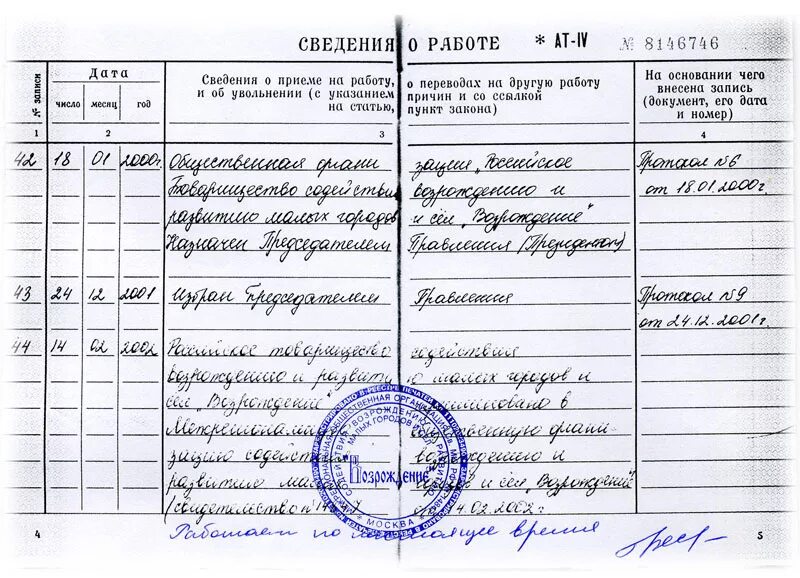 СВЕДЕНИЯ О РАБОТЕ * АТ-IV № 8146746
№ записи
Дата
число месяц год
Сведения о приеме на работу, о переводах на другую работу
и об увольнении (с указанием причин и со ссылкой
на статью, пункт закона)
На основании чего
внесена запись
(документ, его дата
и номер)
1 2 3 4
42 18 01 2000г. Общественная органи зация "Российское Протокол №6
Товарищество содействия возрождению и от 18.01.2000г.
развитию малых городов и сёл "Возрождение"
Назначен Председателем Правления (Президентом)
43 24 12 2001 Избран Председателем Правления Протокол №9
от 24.12.2001г.
44 14 02 2002 Российское товарищество содействия
возрождению и развити ю малых городов и
сёл "Возрождение"
в
Межрегиональ органи-
зацию содейств возрождению и
развитию мал и сёл "Возрождение"
(свидетельство 14.02.2002
Возрождение
МОСКВА
4 Работает по настоящее время 5